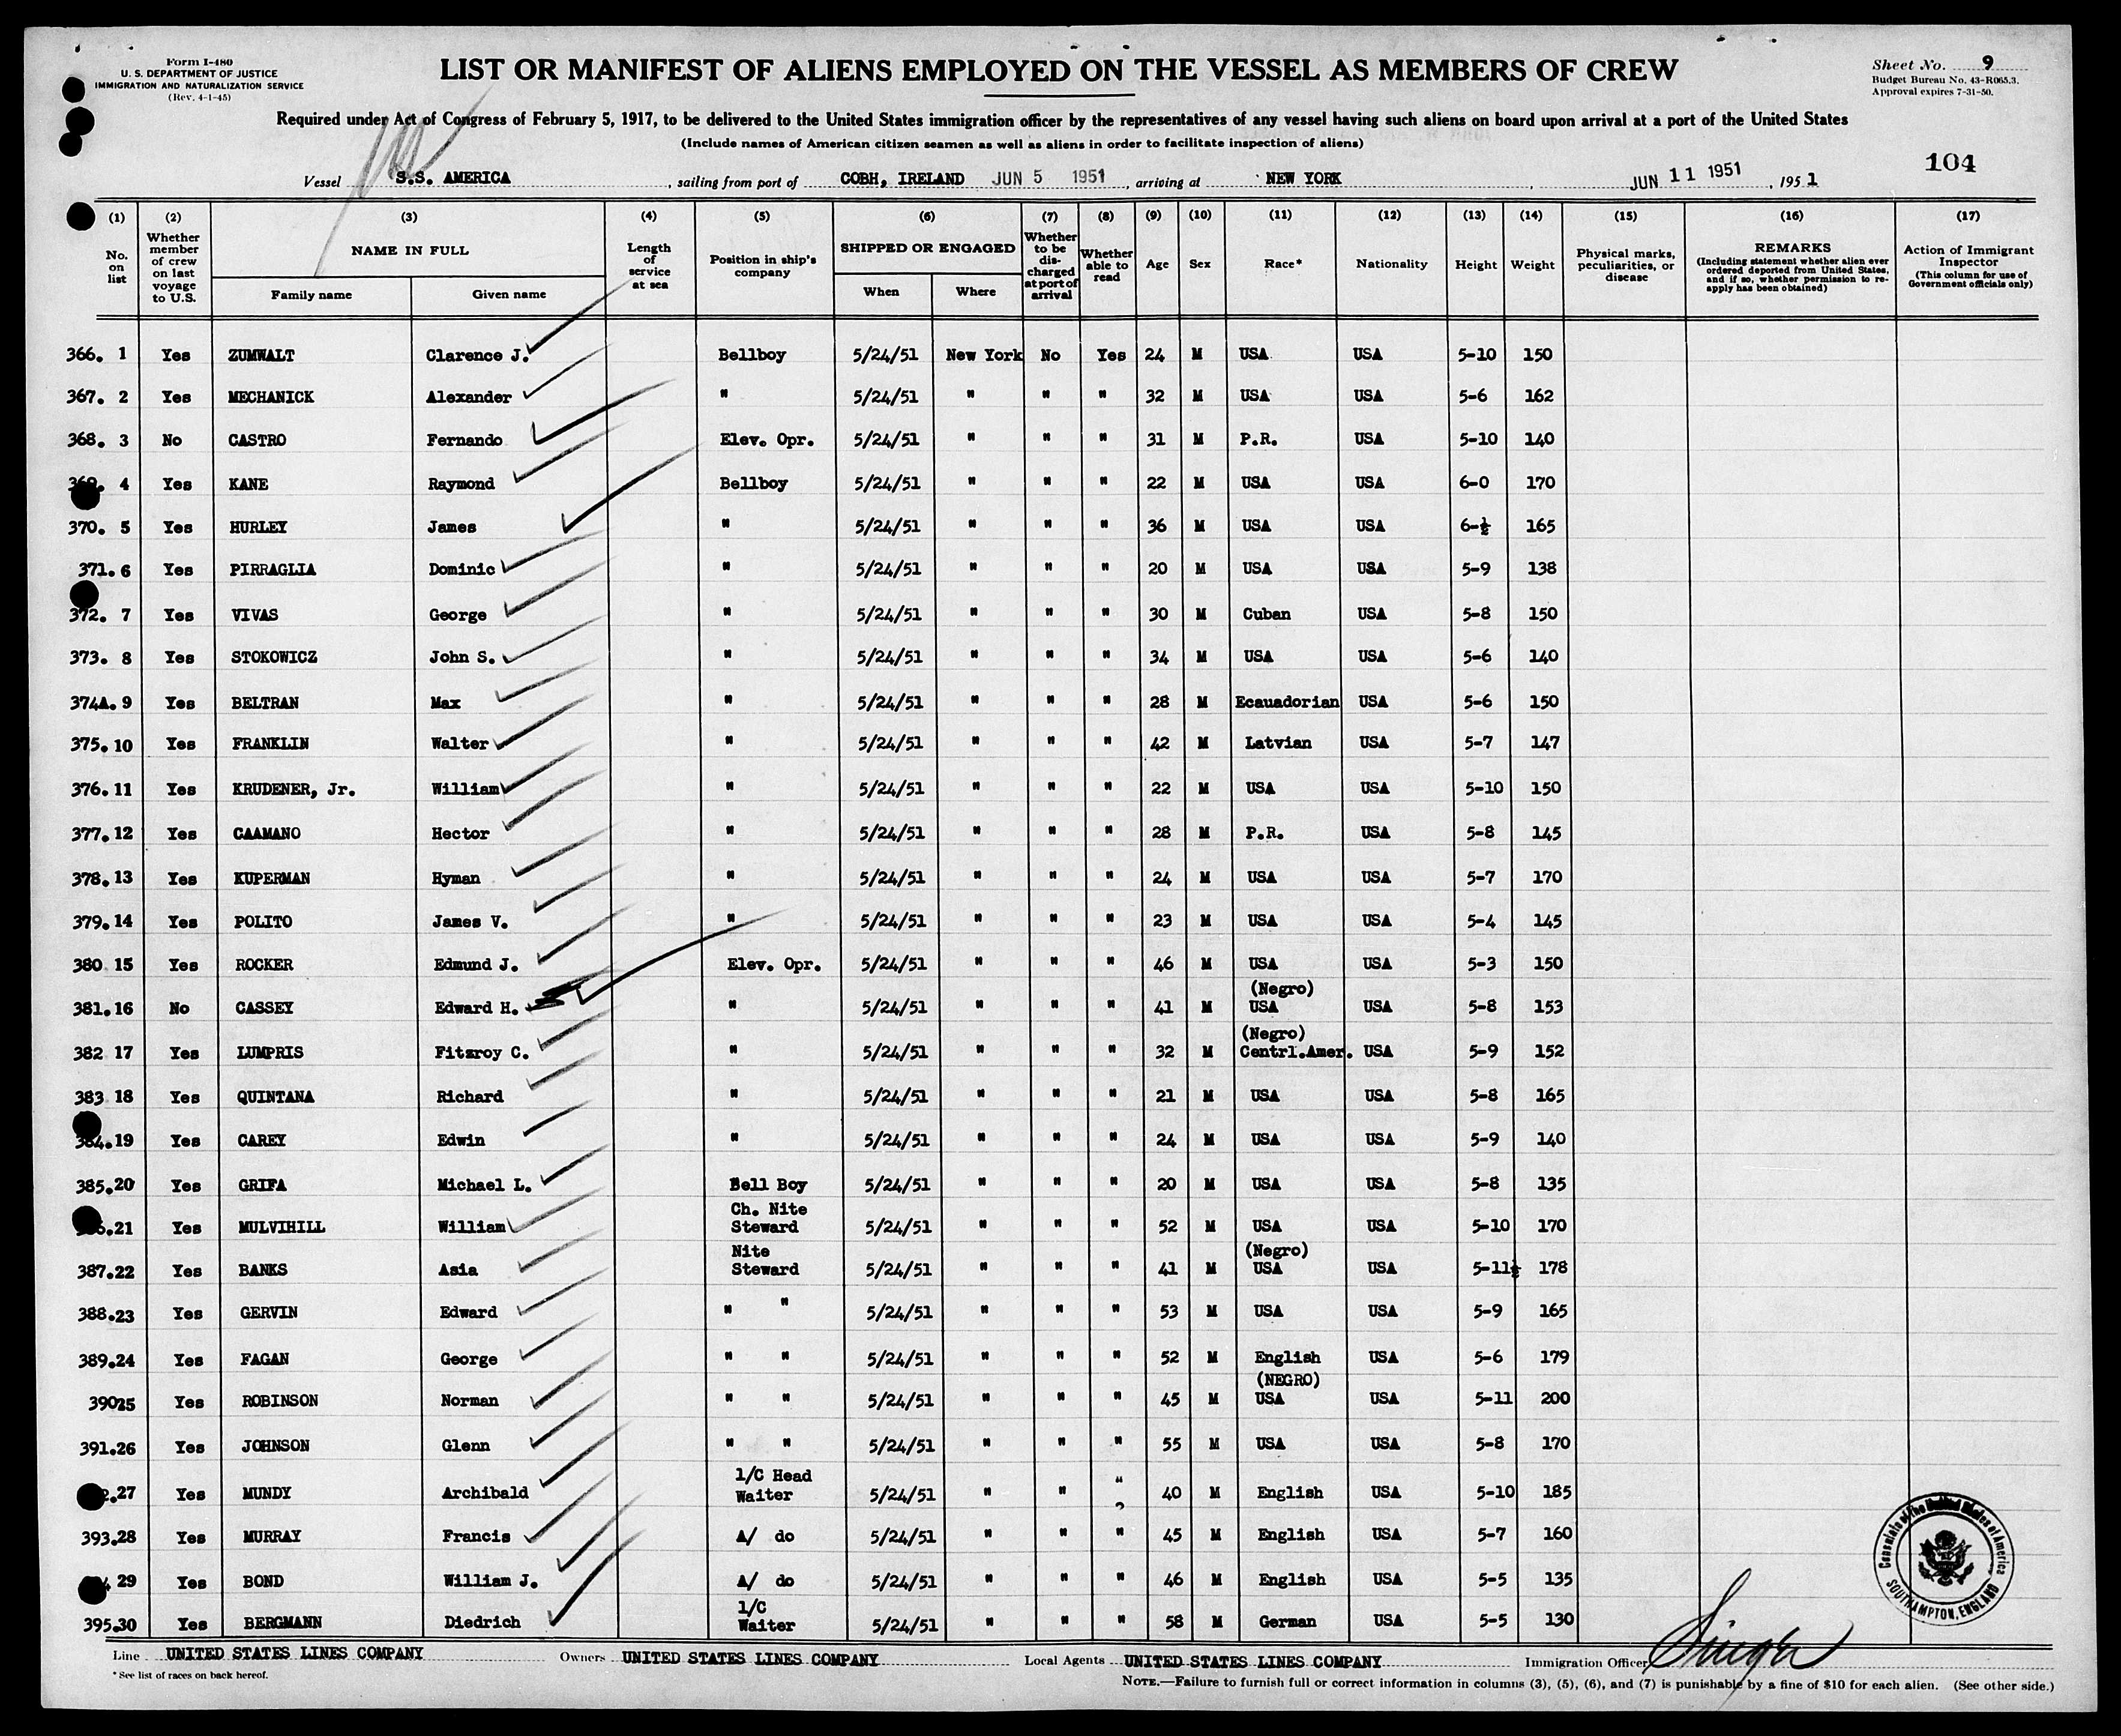 Form I-480
U. S. DEPARTMENT OF JUSTICE
IMMIGRATION AND NATURALIZATION SERVICE
(Rev. 4-1-45)
LIST OR MANIFEST OF ALIENS EMPLOYED ON THE VESSEL AS MEMBERS OF CREW
Sheet No. 9
Budget Bureau No. 43-R065.3.
Approval expires 7-31-50.
Required under Act of Congress of February 5, 1917, to be delivered to the United States immigration officer by the representatives of any vessel having such aliens on board upon arrival at a port of the United States
(Include names of American citizen seamen as well as aliens in order to facilitate inspection of aliens)
104
Vessel S.S. AMERICA, sailing from port of COBH, IRELAND JUN 5 1951, arriving at NEW YORK, JUN 11 1951, 1951
(1) No. on list
(2) Whether member of crew on last voyage to U.S.
(3) NAME IN FULL Family name Given name
(4) Length of service at sea
(5) Position in ship's company
(6) SHIPPED OR ENGAGED When Where
(7) Whether to be discharged at port of arrival
(8) Whether able to read
(9) Age
(10) Sex
(11) Race*
(12) Nationality
(13) Height
(14) Weight
(15) Physical marks, peculiarities, or disease
(16) REMARKS (Including statement whether alien ever ordered deported from United States, and if so, whether permission to re-apply has been obtained)
(17) Action of Immigrant Inspector (This column for use of Government officials only)
366. 1 Yes ZUMWALT Clarence J. Bellboy 5/24/51 New York No Yes 24 M USA USA 5-10 150
367. 2 Yes MECHANICK Alexander " 5/24/51 " " " 32 M USA USA 5-6 162
368. 3 No CASTRO Fernando Elev. Opr. 5/24/51 " " " 31 M P.R. USA 5-10 140
369. 4 Yes KANE Raymond Bellboy 5/24/51 " " " 22 M USA USA 6-0 170
370. 5 Yes HURLEY James " 5/24/51 " " " 36 M USA USA 6-½ 165
371. 6 Yes PIRRAGLIA Dominic " 5/24/51 " " " 20 M USA USA 5-9 138
372. 7 Yes VIVAS George " 5/24/51 " " " 30 M Cuban USA 5-8 150
373. 8 Yes STOKOWICZ John S. " 5/24/51 " " " 34 M USA USA 5-6 140
374A. 9 Yes BELTRAN Max " 5/24/51 " " " 28 M Ecauadorian USA 5-6 150
375. 10 Yes FRANKLIN Walter " 5/24/51 " " " 42 M Latvian USA 5-7 147
376. 11 Yes KRUDENER, Jr. William " 5/24/51 " " " 22 M USA USA 5-10 150
377. 12 Yes CAAMANO Hector " 5/24/51 " " " 28 M P.R. USA 5-8 145
378. 13 Yes KUPERMAN Hyman " 5/24/51 " " " 24 M USA USA 5-7 170
379. 14 Yes POLITO James V. " 5/24/51 " " " 23 M USA USA 5-4 145
380 15 Yes ROCKER Edmund J. Elev. Opr. 5/24/51 " " " 46 M USA USA 5-3 150
381. 16 No CASSEY Edward H. " 5/24/51 " " " 41 M (Negro) USA USA 5-8 153
382 17 Yes LUMPRIS Fitzroy C. " 5/24/51 " " " 32 M (Negro) Centrl.Amer. USA 5-9 152
383 18 Yes QUINTANA Richard " 5/24/51 " " " 21 M USA USA 5-8 165
384. 19 Yes CAREY Edwin " 5/24/51 " " " 24 M USA USA 5-9 140
385. 20 Yes GRIFA Michael L. Bell Boy 5/24/51 " " " 20 M USA USA 5-8 135
.21 Yes MULVIHILL William Ch. Nite Steward 5/24/51 " " " 52 M USA USA 5-10 170
387. 22 Yes BANKS Asia Nite Steward 5/24/51 " " " 41 M (Negro) USA USA 5-11½ 178
388. 23 Yes GERVIN Edward " " 5/24/51 " " " 53 M USA USA 5-9 165
389. 24 Yes FAGAN George " " 5/24/51 " " " 52 M English USA 5-6 179
390 25 Yes ROBINSON Norman " " 5/24/51 " " " 45 M (NEGRO) USA USA 5-11 200
391. 26 Yes JOHNSON Glenn " " 5/24/51 " " " 55 M USA USA 5-8 170
.27 Yes MUNDY Archibald 1/C Head Waiter 5/24/51 " " " 40 M English USA 5-10 185
393. 28 Yes MURRAY Francis A/ do 5/24/51 " " " 45 M English USA 5-7 160
29 Yes BOND William J. A/ do 5/24/51 " " " 46 M English USA 5-5 135
395. 30 Yes BERGMANN Diedrich 1/C Waiter 5/24/51 " " " 58 M German USA 5-5 130
Consulate of the United States of America
SOUTHAMPTON, ENGLAND
Line UNITED STATES LINES COMPANY Owners UNITED STATES LINES COMPANY Local Agents UNITED STATES LINES COMPANY Immigration Officer
* See list of races on back hereof.
NOTE.—Failure to furnish full or correct information in columns (3), (5), (6), and (7) is punishable by a fine of $10 for each alien. (See other side.)